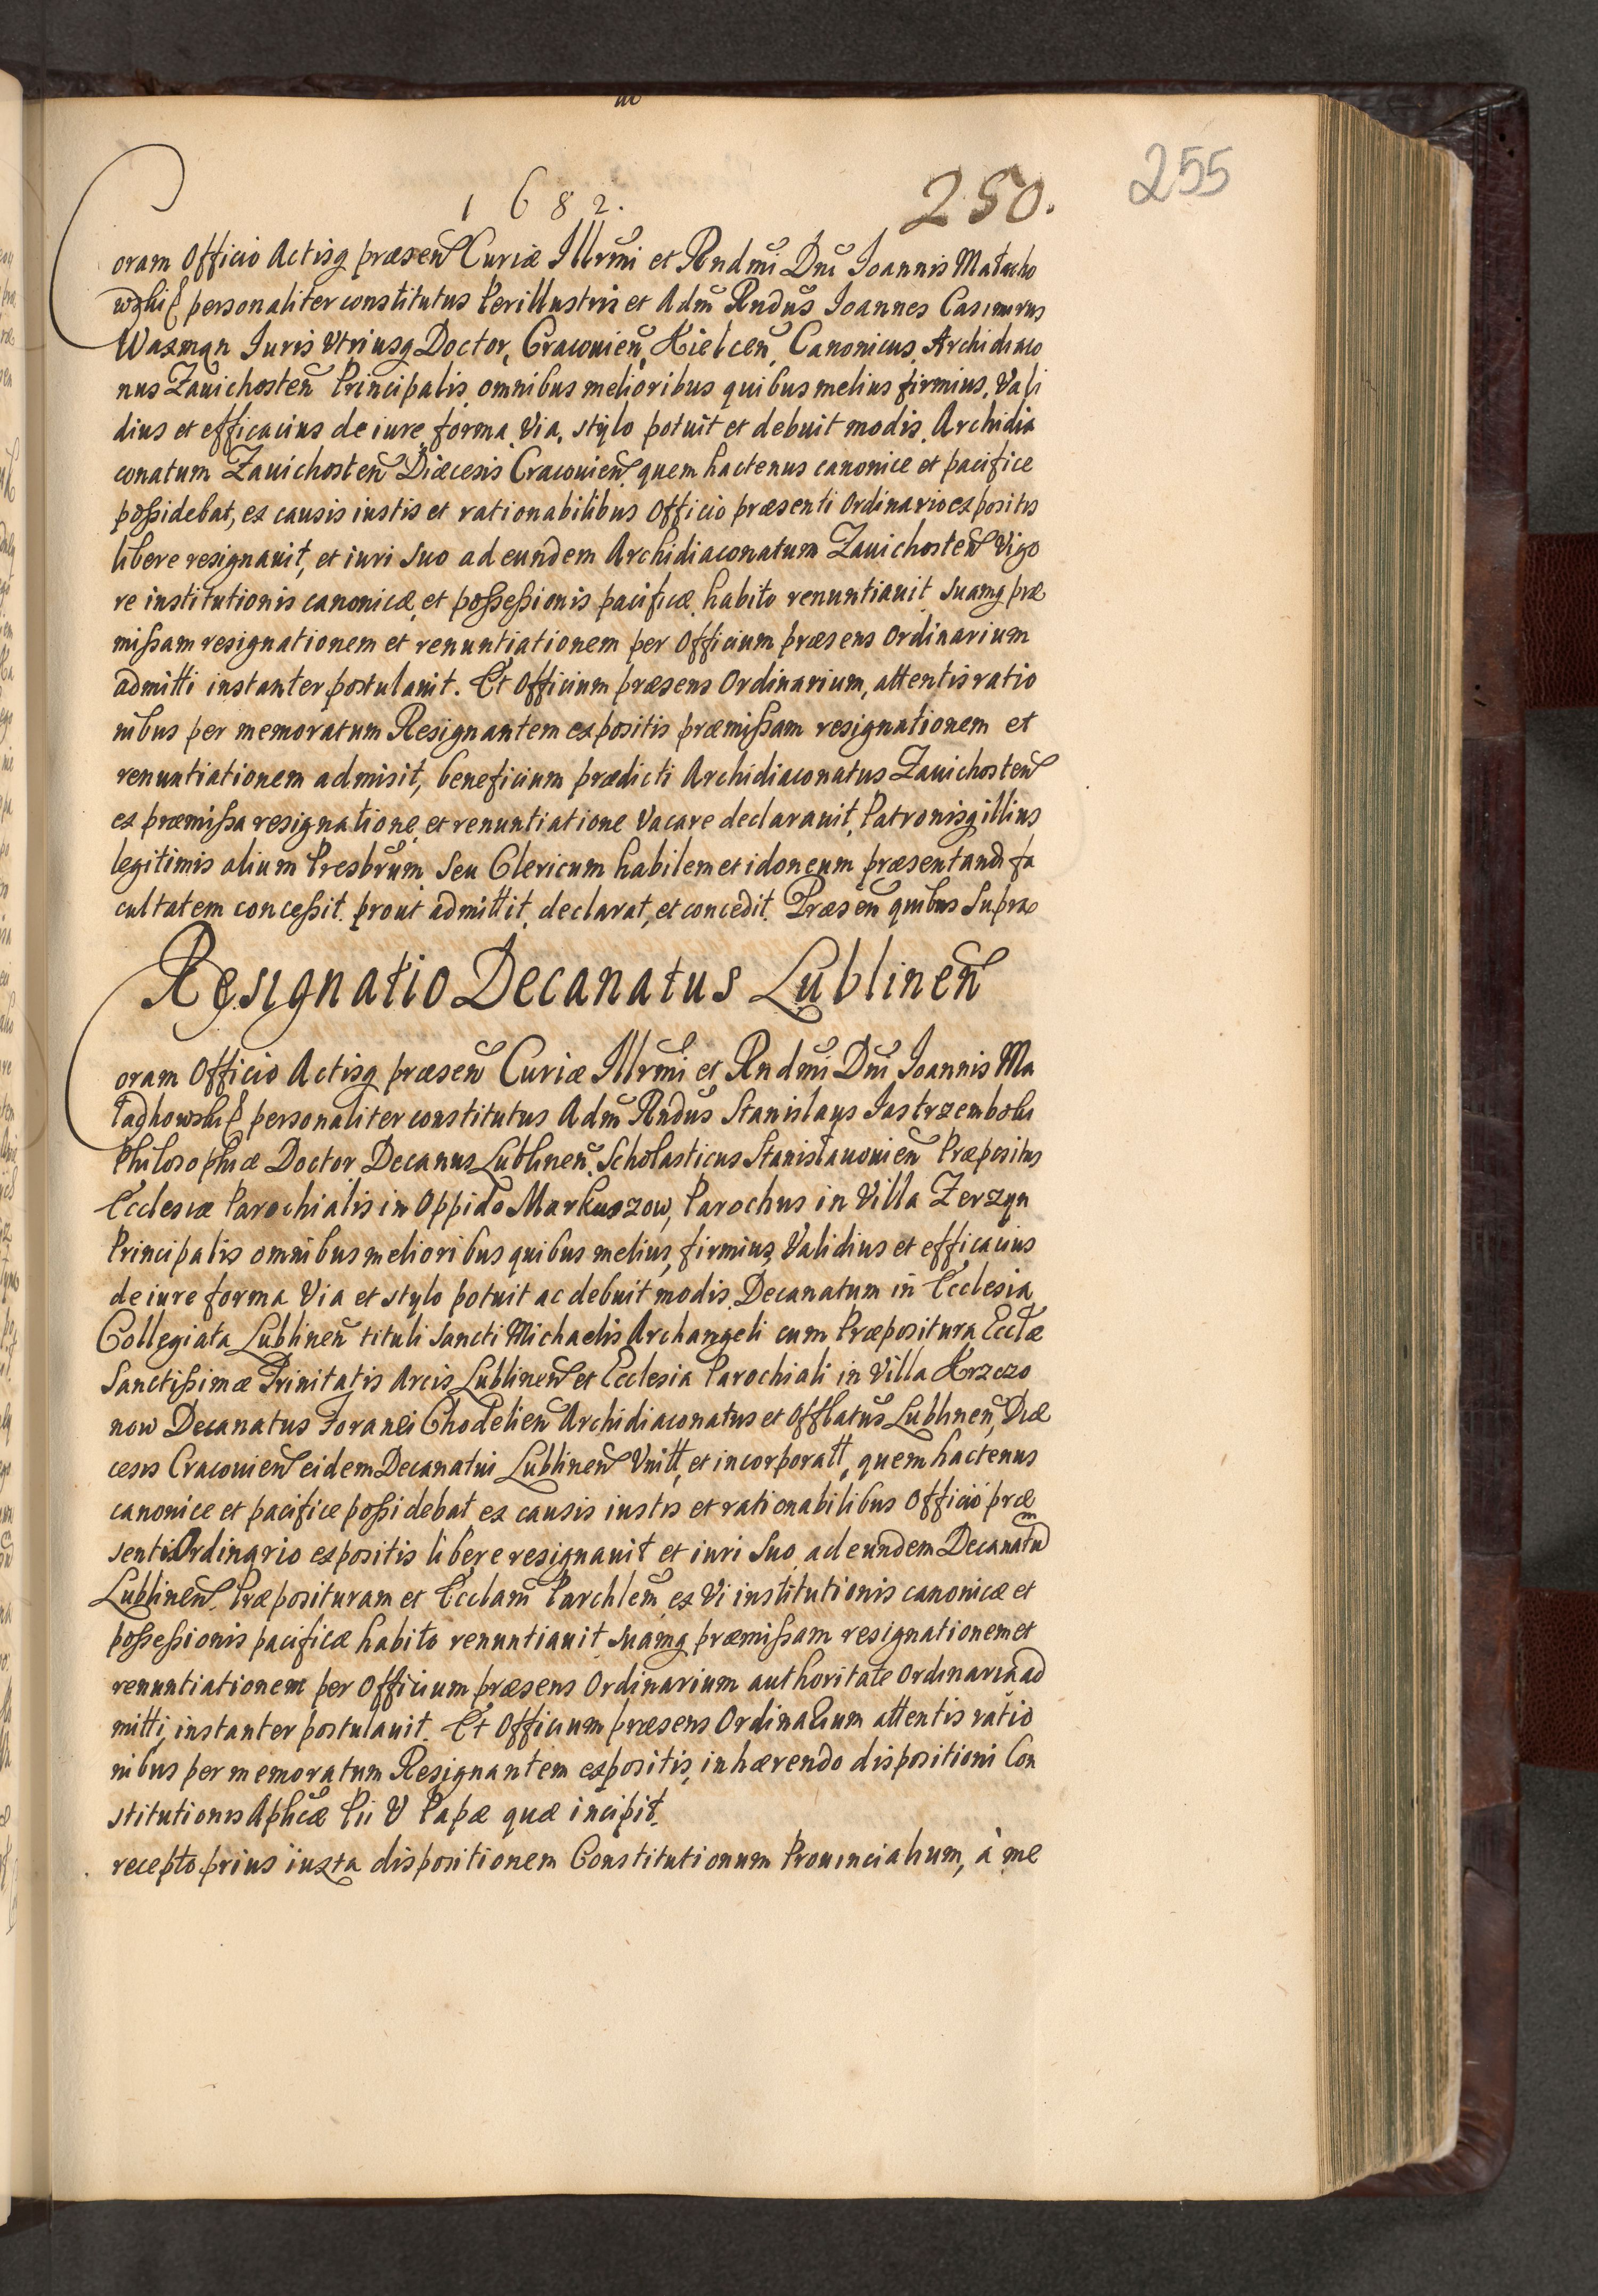 1682.
250.
255
Coram Officio Actisq præsen Curiæ Illrmi et Rndmi Dni Ioannis Małacho
wski personaliter constitutus Perillustris et Adm Rndus Ioannes Casimirus
Waxman Iuris Vtriusq Doctor, Cracouien, Kielcen Canonicus, Archidiaco
nus Zauichosten Principalis omnibus melioribus quibus melius firmius, Vali
dius et efficacius de iure, forma, Via, stylo potuit et debuit modis, Archidia
conatum Zauichosten Diæcesis Cracouien, quem hactenus canonice et pacifice
possidebat, ex causis iustis et rationabilibus Officio præsenti Ordinario expositis
libere resignauit, et iuri suo ad eundem Archidiaconatum Zauichosten Vigo
re institutionis canonicæ, et possessionis pacificæ, habito renuntiauit suamq præ
missam resignationem et renuntiationem per Officium præsens Ordinarium
admitti instanter postulauit. Et Officium præsens Ordinarium, attentis ratio
nibus per memoratum Resignantem expositis præmissam resignationem et
renuntiationem admisit, beneficium prædicti Archidiaconatus Zauichosten
ex præmissa resignatione, et renuntiatione Vacare declarauit, Patronisq illius
legitimis alium Presbrum seu Clericum habilem et idoneum præsentandi fa
cultatem concessit. prout admittit, declarat, et concedit. Præsen quibus supra
Resignatio Decanatus Lublinen
Coram Officio Actisq præsen Curiæ Illrmi et Rndmi Dni Ioannis Ma
łachowski personaliter constitutus Adm Rndus Stanislaus Iastrzembski
Philosophiæ Doctor Decanus Lublinen, Scholasticus Stanisłauouien Præpositus
Ecclesiæ Parochialis in Oppido Markuszow, Parochus in Villa Zerzyn
Principalis omnibus melioribus quibus melius, firmius, Validius et efficacius
de iure forma Via et stylo potuit ac debuit modis, Decanatum in Ecclesia
Collegiata Lublinen tituli Sancti Michaelis Archangeli cum Præpositura Ecclæ
Sanctissimæ Trinitatis Arcis Lublinen et Ecclesia Parochiali in Villa Krzczo
now Decanatus Foranei Chodelien Archidiaconatus et Offlatus Lublinen, Diæ
cesis Cracouien eidem Decanatui Lublinen Vnitt, et incorporatt, quem hactenus
canonice et pacifice possidebat ex causis iustis et rationabilibus Officio præ
senti Ordinario expositis libere resignauit et iuri suo ad eundem Decanatum
Lublinen, Præposituram et Ecclam Parchlem ex Vi institutionis canonicæ et
possessionis pacificæ habito renuntiauit suamq præmissam resignationem et
renuntiationem per Officium præsens Ordinarium authoritate Ordinaria ad
mitti, instanter postulauit. Et Officium præsens Ordinarium attentis ratio
nibus per memoratum Resignantem expositis, inhærendo dispositioni Con
stitutionis Aplicæ Pii V Papæ quæ incipit.
recepto prius iuxta dispositionem Constitutionum Prouincialium, à me